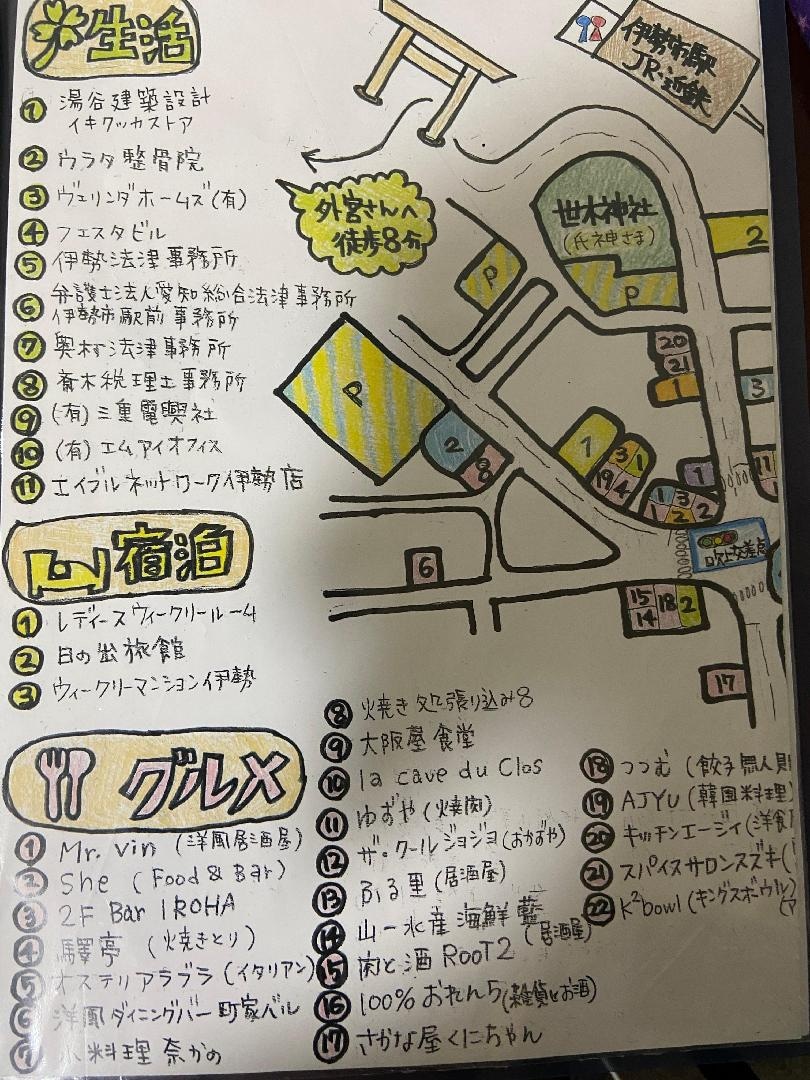 生活
① 湯谷建築設計
イキクッカストア
② ウラタ整骨院
③ ヴェリンダホームズ(有)
④ フェスタビル
⑤ 伊勢法津事務所
⑥ 弁護士法人愛知総合法津事務所
伊勢市駅前事務所
⑦ 奥村法津事務所
⑧ 斎木税理士事務所
⑨ (有)三重電興社
⑩ (有)エムアイオフィス
⑪ エイブルネットワーク伊勢店
宿泊
① レディースウィークリールーム
② 日の出旅館
③ ウィークリーマンション伊勢
グルメ
① Mr. Vin (洋風居酒屋)
② She (Food & Bar)
③ 2F Bar IROHA
④ 驛亭 (焼きとり)
⑤ オステリアラブラ(イタリアン)
⑥ 洋風ダイニングバー町家バル
⑦ 料理 奈かの
⑧ 焼き処張り込み8
⑨ 大阪屋食堂
⑩ la cave du Clos
⑪ ゆずや(焼肉)
⑫ ザ・クールジョジョ(おかずや)
⑬ ふる里(居酒屋)
⑭ 山一水産海鮮藍(居酒屋)
⑮ 肉と酒 ROOT2
⑯ 100%おれんち(雑貨とお酒)
⑰ さかな屋くにちゃん
⑱ つつむ(餃子無人
⑲ AJYU(韓国料理)
⑳ キッチンエージィ(洋食
㉑ スパイスサロンスズキ(
㉒ K²bowl(キングスボウル)
伊勢市駅
JR・近鉄
外宮さんへ
徒歩8分
世木神社
(氏神さま)
2
P
P
20
21
1
3
P
2
8
1
3
1
19
4
1
11
1
3
1
2
2
吹上交差点
6
15
14
18
2
17